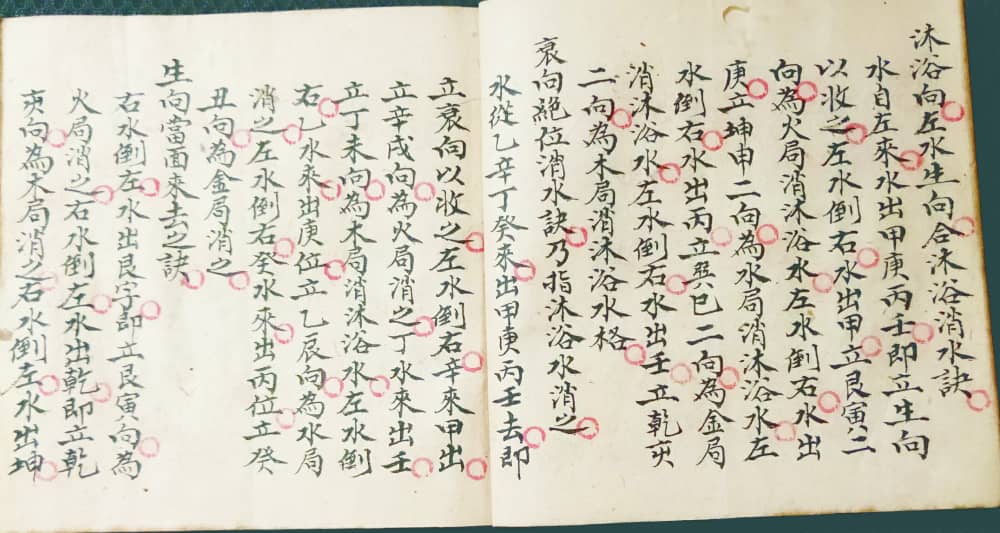 沐浴向左水生向合沐浴消水訣
水自左來水出甲庚丙壬即立生向
以收之左水倒右水出甲立艮寅二
向為火局消沐浴水左水倒右水出
庚立坤申二向為水局消沐浴水左
水倒右水出丙立巽巳二向為金局
消沐浴水左水倒右水出壬立乾亥
二向為木局消沐浴水格
衰向絕位消水訣乃指沐浴水消之
水從乙辛丁癸來出甲庚丙壬去即
立衰向以收之左水倒右辛來甲出
立辛戌向為火局消之丁水來出壬
立丁未向為木局消沐浴水左水倒
右乙水來出庚位立乙辰向為水局
消之左水倒右癸水來出丙位立癸
丑向為金局消之
生向當面來去之訣
右水倒左水出艮字即立艮寅向為
火局消之右水倒左水出乾即立乾
亥向為木局消之右水倒左水出坤